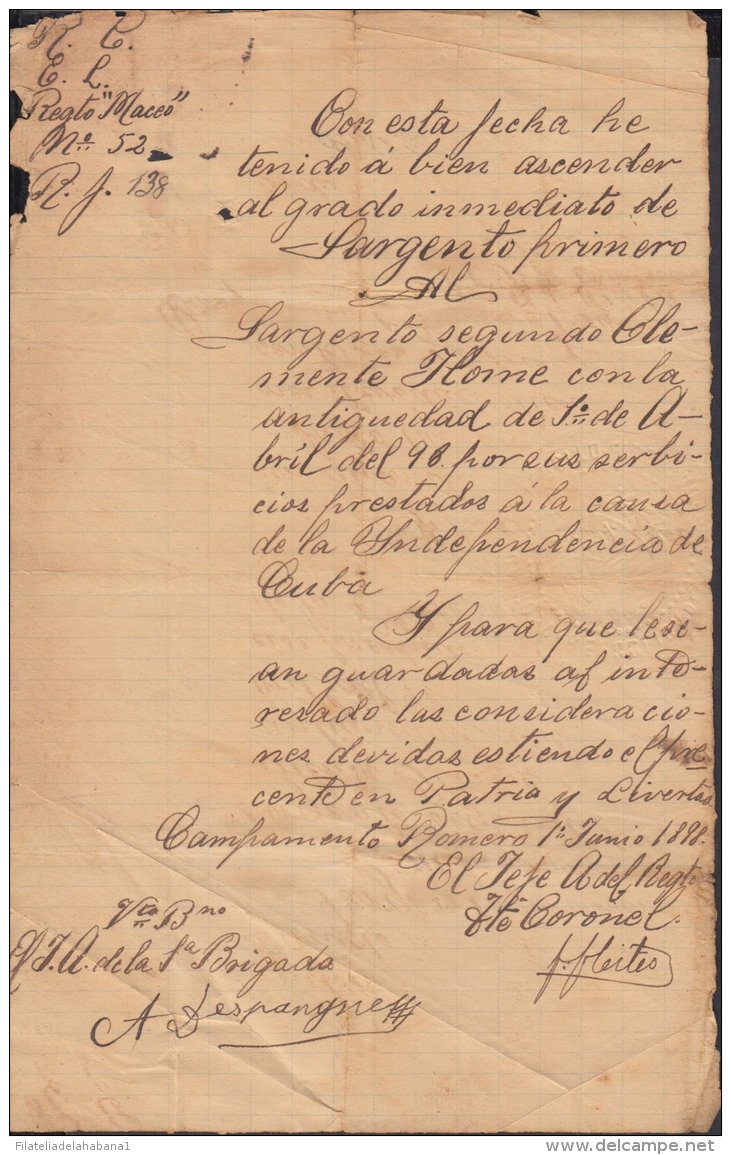 R. C.
E. L.
Regto "Maceo"
No. 52
R. J. 138
Con esta fecha he
tenido á bien ascender
al grado inmediato de
Sargento primero
Al
Sargento segundo Cle-
mente Home con la
antiguedad de 1o. de A-
bril del 98. por sus serbi-
cios prestados á la causa
de la Yndependencia de
Cuba
Y para que le se-
an guardadas al inte-
resado las consideracio-
nes devidas estiendo el pre-
cente en Patria y Livertad
Campamento Romero 1o. Junio 1898.
El Jefe A del Regto
Tte Coronel.
Vto Bno
El J. A. de la 1a Brigada
A Despangne
Filateliadelahabana1
delcampe.net